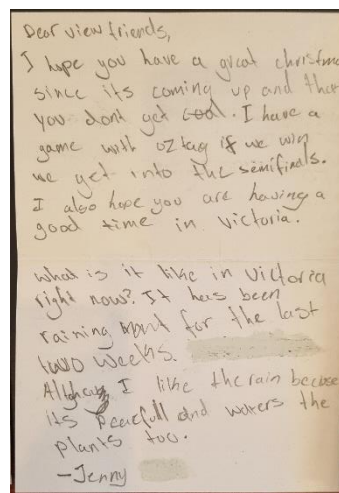 Dear view friends,
I hope you have a great christmas
since its coming up and that
you dont get coal. I have a
game with oztag if we win
we get into the semifinals.
I also hope you are having a
good time in Victoria.
What is it like in Victoria
right now? It has been
raining for the last
two weeks.
I like the rain because
its peacefull and waters the
plants too.
-Jenny